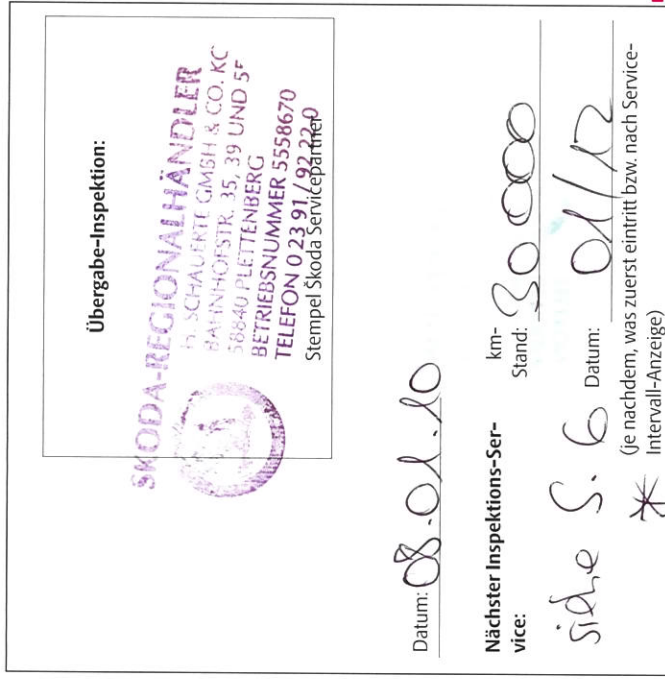 Übergabe-Inspektion:
SKODA-REGIONALHÄNDLER
H. SCHAUERTE GMBH & CO. KG
BAHNHOFSTR. 35, 39 UND 5
58840 PLETTENBERG
BETRIEBSNUMMER 5558670
TELEFON 0 23 91 / 92 22 0
Stempel Škoda Servicepartner
Datum: 08.01.10
Nächster Inspektions-Ser-
vice:
km-
Stand: 30 000
siehe S. 6
Datum: 01/12
* (je nachdem, was zuerst eintritt bzw. nach Service-
Intervall-Anzeige)